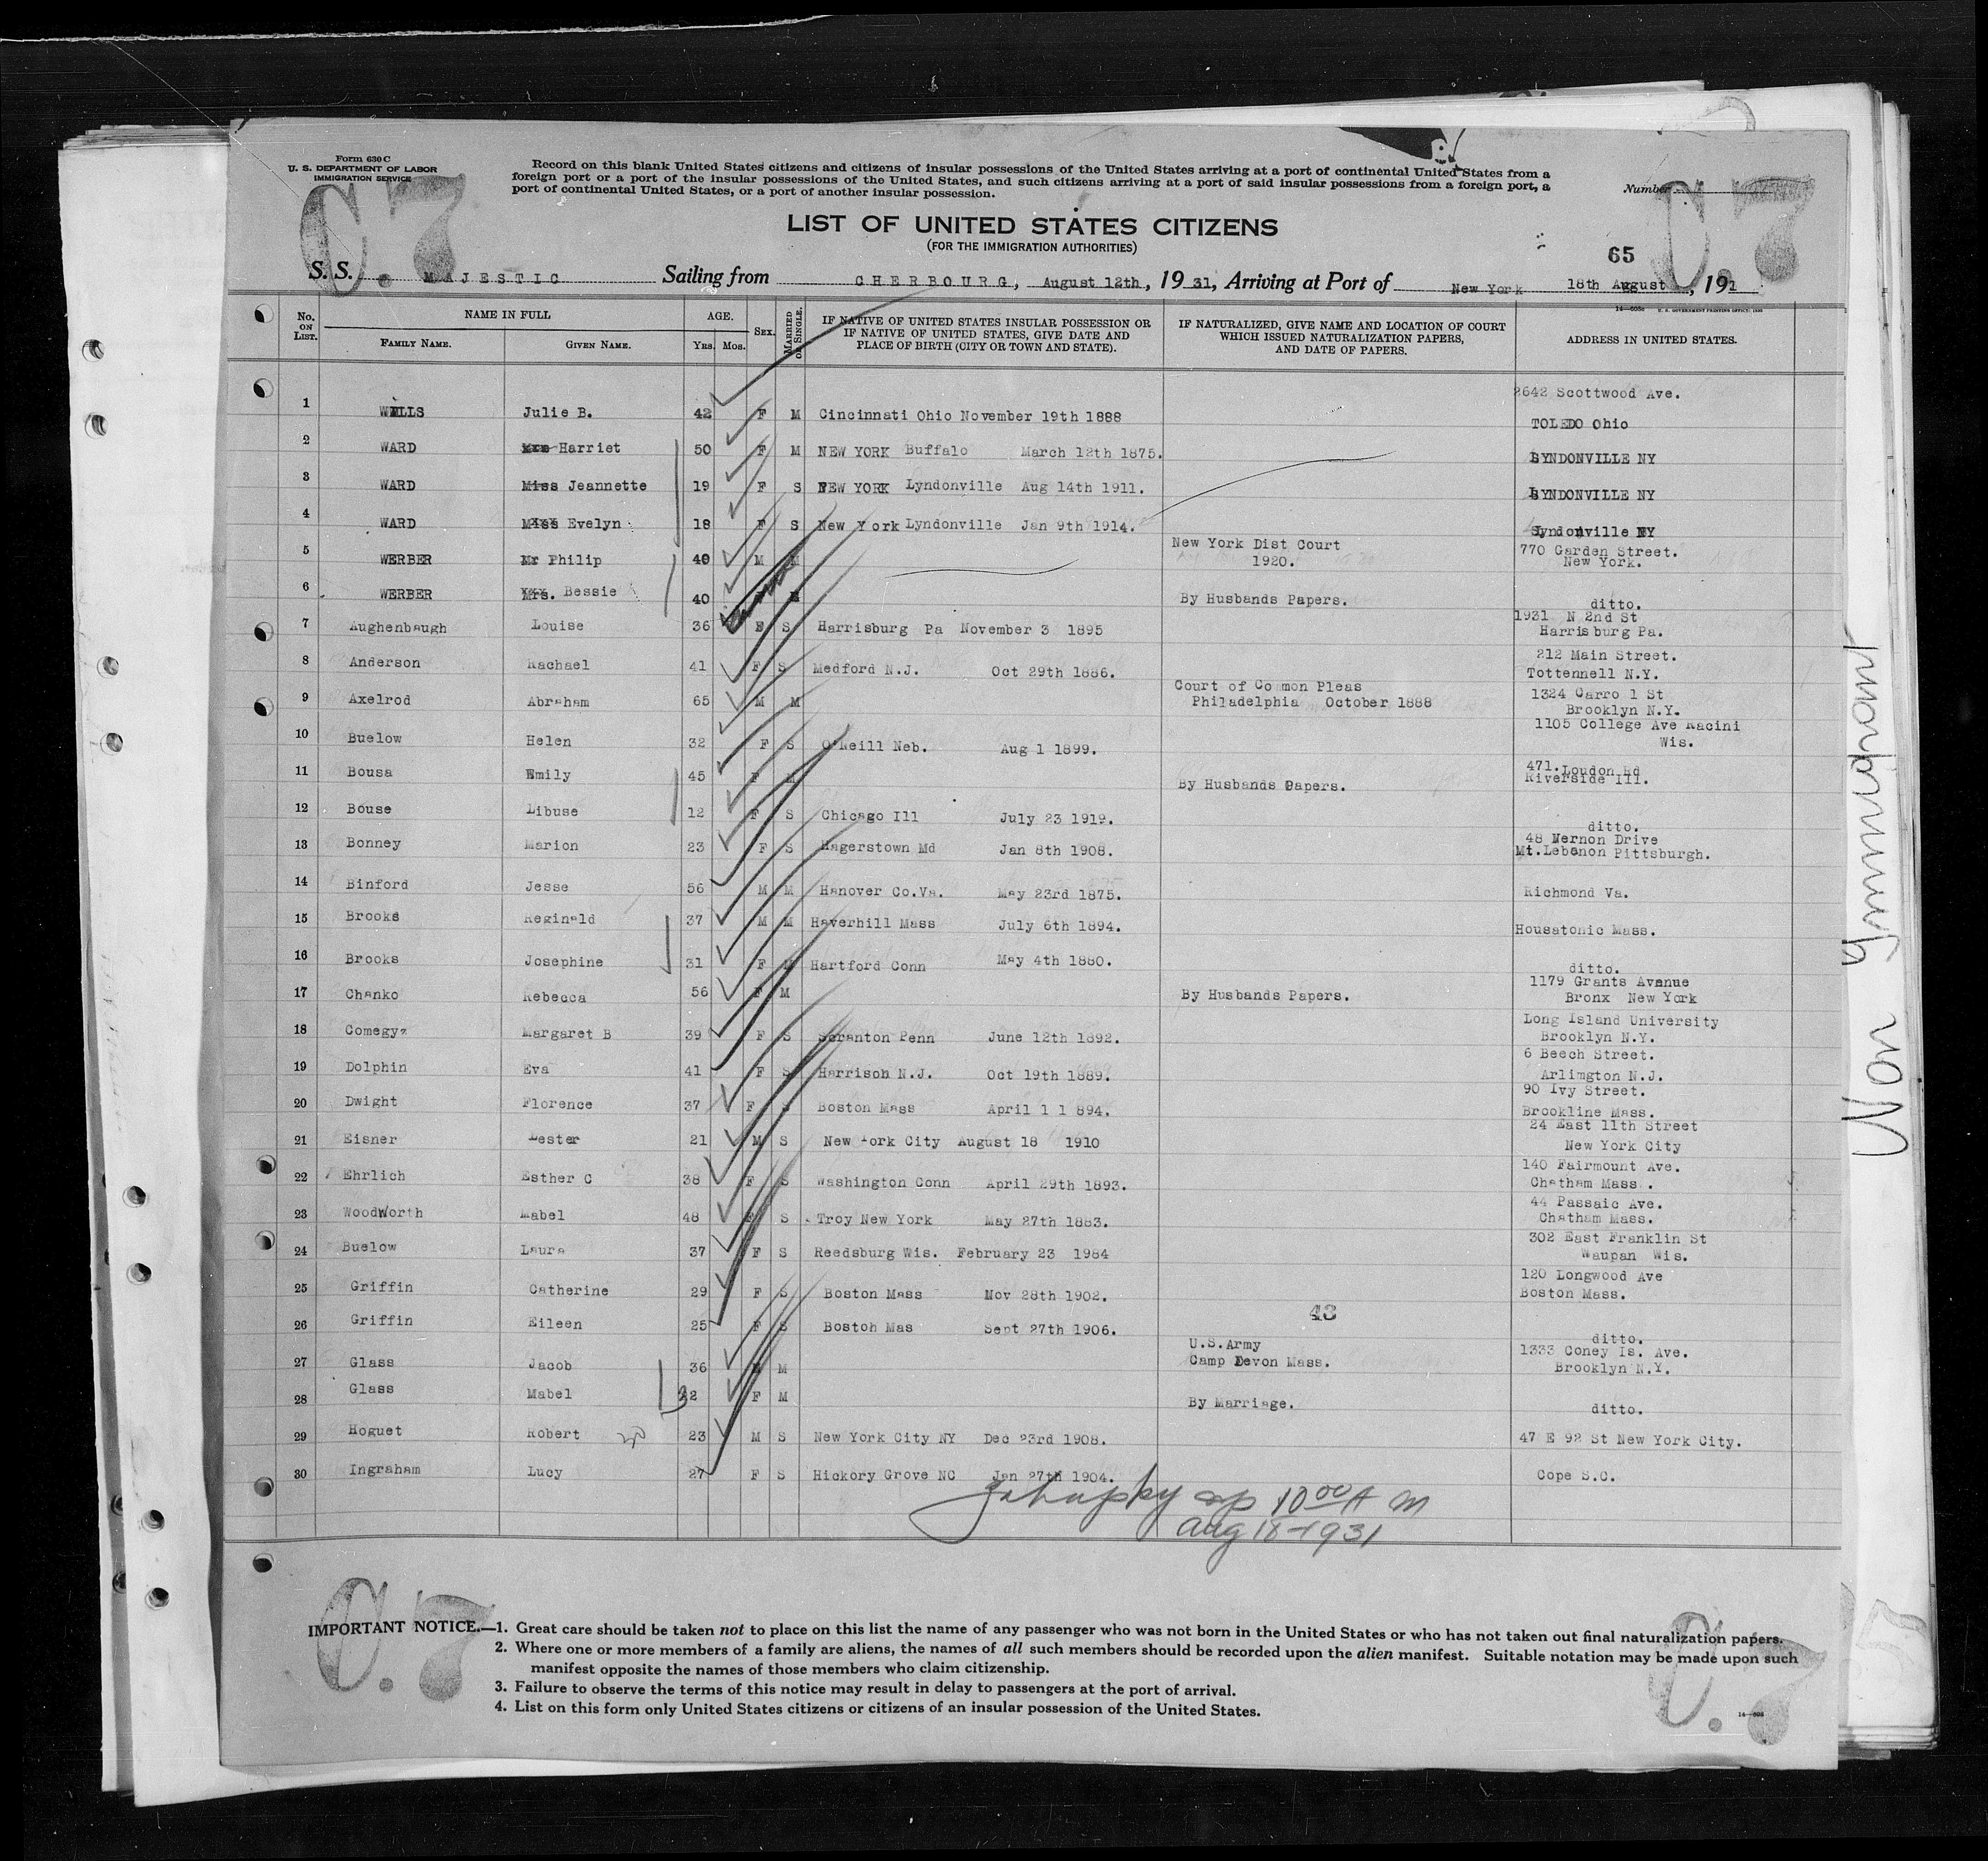 Form 630 C
U. S. DEPARTMENT OF LABOR
IMMIGRATION SERVICE
C.7
Record on this blank United States citizens and citizens of insular possessions of the United States arriving at a port of continental United States from a
foreign port or a port of the insular possessions of the United States, and such citizens arriving at a port of said insular possessions from a foreign port, a
port of continental United States, or a port of another insular possession.
Number
C.7
LIST OF UNITED STATES CITIZENS
(FOR THE IMMIGRATION AUTHORITIES)
65
S. S. MAJESTIC Sailing from CHERBOURG, August 12th, 19 31, Arriving at Port of New York 18th August, 191
No. ON LIST. NAME IN FULL FAMILY NAME. GIVEN NAME. AGE. Yrs. Mos. SEX. MARRIED OR SINGLE. IF NATIVE OF UNITED STATES INSULAR POSSESSION OR IF NATIVE OF UNITED STATES, GIVE DATE AND PLACE OF BIRTH (CITY OR TOWN AND STATE). IF NATURALIZED, GIVE NAME AND LOCATION OF COURT WHICH ISSUED NATURALIZATION PAPERS, AND DATE OF PAPERS. ADDRESS IN UNITED STATES.
1 WELLS Julie B. 42 F M Cincinnati Ohio November 19th 1888 2642 Scottwood Ave. TOLEDO Ohio
2 WARD Harriet 50 F M NEW YORK Buffalo March 12th 1875. LYNDONVILLE NY
3 WARD Miss Jeannette 19 F S NEW YORK Lyndonville Aug 14th 1911. LYNDONVILLE NY
4 WARD Miss Evelyn 18 F S New York Lyndonville Jan 9th 1914. Lyndonville NY
5 WERBER Mr Philip 40 M M New York Dist Court 1920. 770 Garden Street. New York.
6 WERBER Mrs. Bessie 40 By Husbands Papers. ditto.
7 Aughenbaugh Louise 36 F S Harrisburg Pa November 3 1895 1931 N 2nd St Harrisburg Pa.
8 Anderson Rachael 41 F S Medford N.J. Oct 29th 1886. 212 Main Street. Tottennell N.Y.
9 Axelrod Abraham 65 M M Court of Common Pleas Philadelphia October 1888 1324 Carro l St Brooklyn N.Y.
10 Buelow Helen 32 F S O'Neill Neb. Aug 1 1899. 1105 College Ave Racini Wis.
11 Bousa Emily 45 F M By Husbands Papers. 471. Loudon Rd Riverside Ill.
12 Bouse Libuse 12 F S Chicago Ill July 23 1919. ditto.
13 Bonney Marion 23 F S Hagerstown Md Jan 8th 1908. 48 Mernon Drive Mt.Lebanon Pittsburgh.
14 Binford Jesse 56 M M Hanover Co.Va. May 23rd 1875. Richmond Va.
15 Brooks Reginald 37 M M Haverhill Mass July 6th 1894. Housatonic Mass.
16 Brooks Josephine 31 F M Hartford Conn May 4th 1880. ditto.
17 Chanko Rebecca 56 F M By Husbands Papers. 1179 Grants Avenue Bronx New York
18 Comegyz Margaret B 39 F S Scranton Penn June 12th 1892. Long Island University Brooklyn N.Y.
19 Dolphin Eva 41 F S Harrison N.J. Oct 19th 1889. 6 Beech Street. Arlington N.J.
20 Dwight Florence 37 F S Boston Mass April 1 1 894. 90 Ivy Street. Brookline Mass.
21 Eisner Lester 21 M S New York City August 18 1910 24 East 11th Street New York City
22 Ehrlich Esther C 38 F S Washington Conn April 29th 1893. 140 Fairmount Ave. Chatham Mass.
23 Woodworth Mabel 48 F S Troy New York May 27th 1883. 44 Passaic Ave. Chatham Mass.
24 Buelow Laura 37 F S Reedsburg Wis. February 23 1984 302 East Franklin St Waupan Wis.
25 Griffin Catherine 29 F S Boston Mass Nov 28th 1902. 120 Longwood Ave Boston Mass.
26 Griffin Eileen 25 F S Boston Mas Sept 27th 1906. 43 ditto.
27 Glass Jacob 36 M M U.S.Army Camp Devon Mass. 1333 Coney Is. Ave. Brooklyn N.Y.
28 Glass Mabel 32 F M By Marriage. ditto.
29 Hoguet Robert 23 M S New York City NY Dec 23rd 1908. 47 E 92 St New York City.
30 Ingraham Lucy 27 F S Hickory Grove NC Jan 27th 1904. Cope S.C.
10 00 A M
Aug 18-1931
Non Immigrant
C.7
C.7
IMPORTANT NOTICE.—1. Great care should be taken not to place on this list the name of any passenger who was not born in the United States or who has not taken out final naturalization papers.
2. Where one or more members of a family are aliens, the names of all such members should be recorded upon the alien manifest. Suitable notation may be made upon such
manifest opposite the names of those members who claim citizenship.
3. Failure to observe the terms of this notice may result in delay to passengers at the port of arrival.
4. List on this form only United States citizens or citizens of an insular possession of the United States.